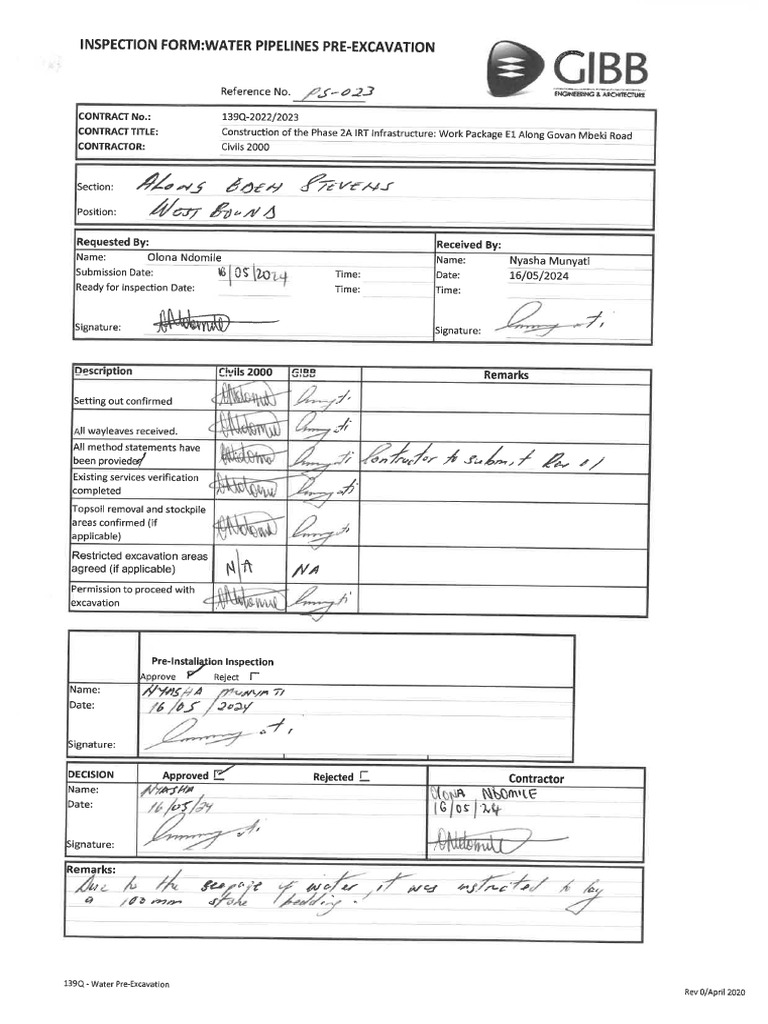 INSPECTION FORM:WATER PIPELINES PRE-EXCAVATION
GIBB
ENGINEERING & ARCHITECTURE
Reference No. PS-023
CONTRACT No.: 139Q-2022/2023
CONTRACT TITLE: Construction of the Phase 2A IRT Infrastructure: Work Package E1 Along Govan Mbeki Road
CONTRACTOR: Civils 2000
Section: ALONG EDEH STEVENS
Position: WEST BOUND
Requested By: Received By:
Name: Olona Ndomile Name: Nyasha Munyati
Submission Date: 16/05/2024 Time: Date: 16/05/2024
Ready for inspection Date: Time: Time:
Signature: Signature:
Description Civils 2000 GIBB Remarks
Setting out confirmed
All wayleaves received.
All method statements have
been provieded Contractor to submit Rev 01
Existing services verification
completed
Topsoil removal and stockpile
areas confirmed (if
applicable)
Restricted excavation areas
agreed (if applicable) N/A NA
Permission to proceed with
excavation
Pre-Installation Inspection
Approve Reject
Name: NYASHA MUNYATI
Date: 16/05/2024
Signature:
DECISION Approved Rejected Contractor
Name: NYASHA OLONA NDOMILE
Date: 16/05/24 16/05/24
Signature:
Remarks:
Due to the seepage of water, it was instructed to lay
a 100mm stone bedding.
139Q - Water Pre-Excavation
Rev 0/April 2020